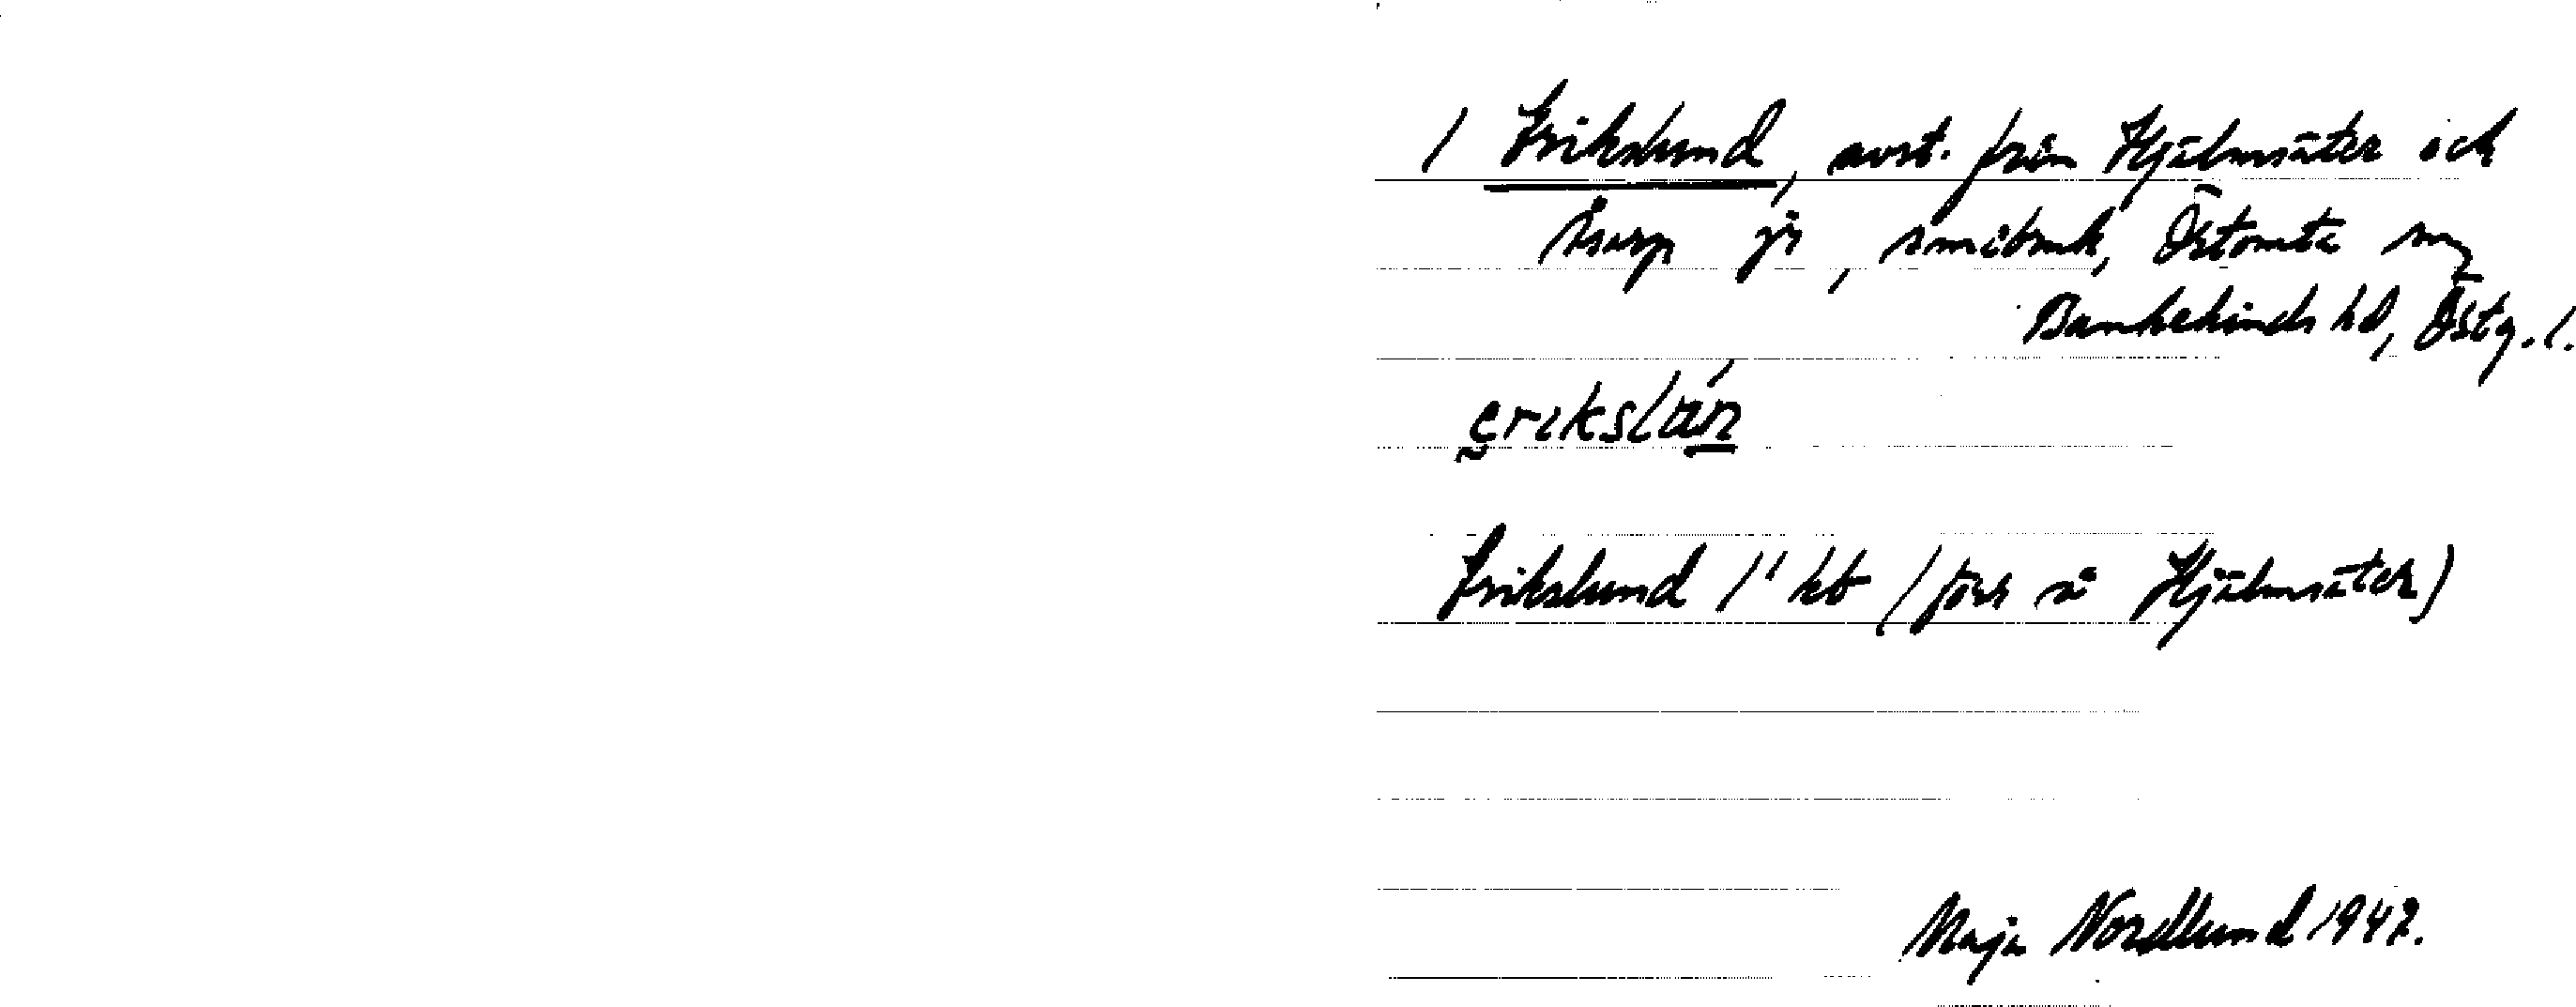 / Erikslund, avst. från Hjälmsäter och
Åsarp jr, småbruk, Östomta
Bankekinds hd, Östg. l.
erikslún
Erikslund 1" kb (förr så Hjälmsäter)
Maja Nordlund 1942.